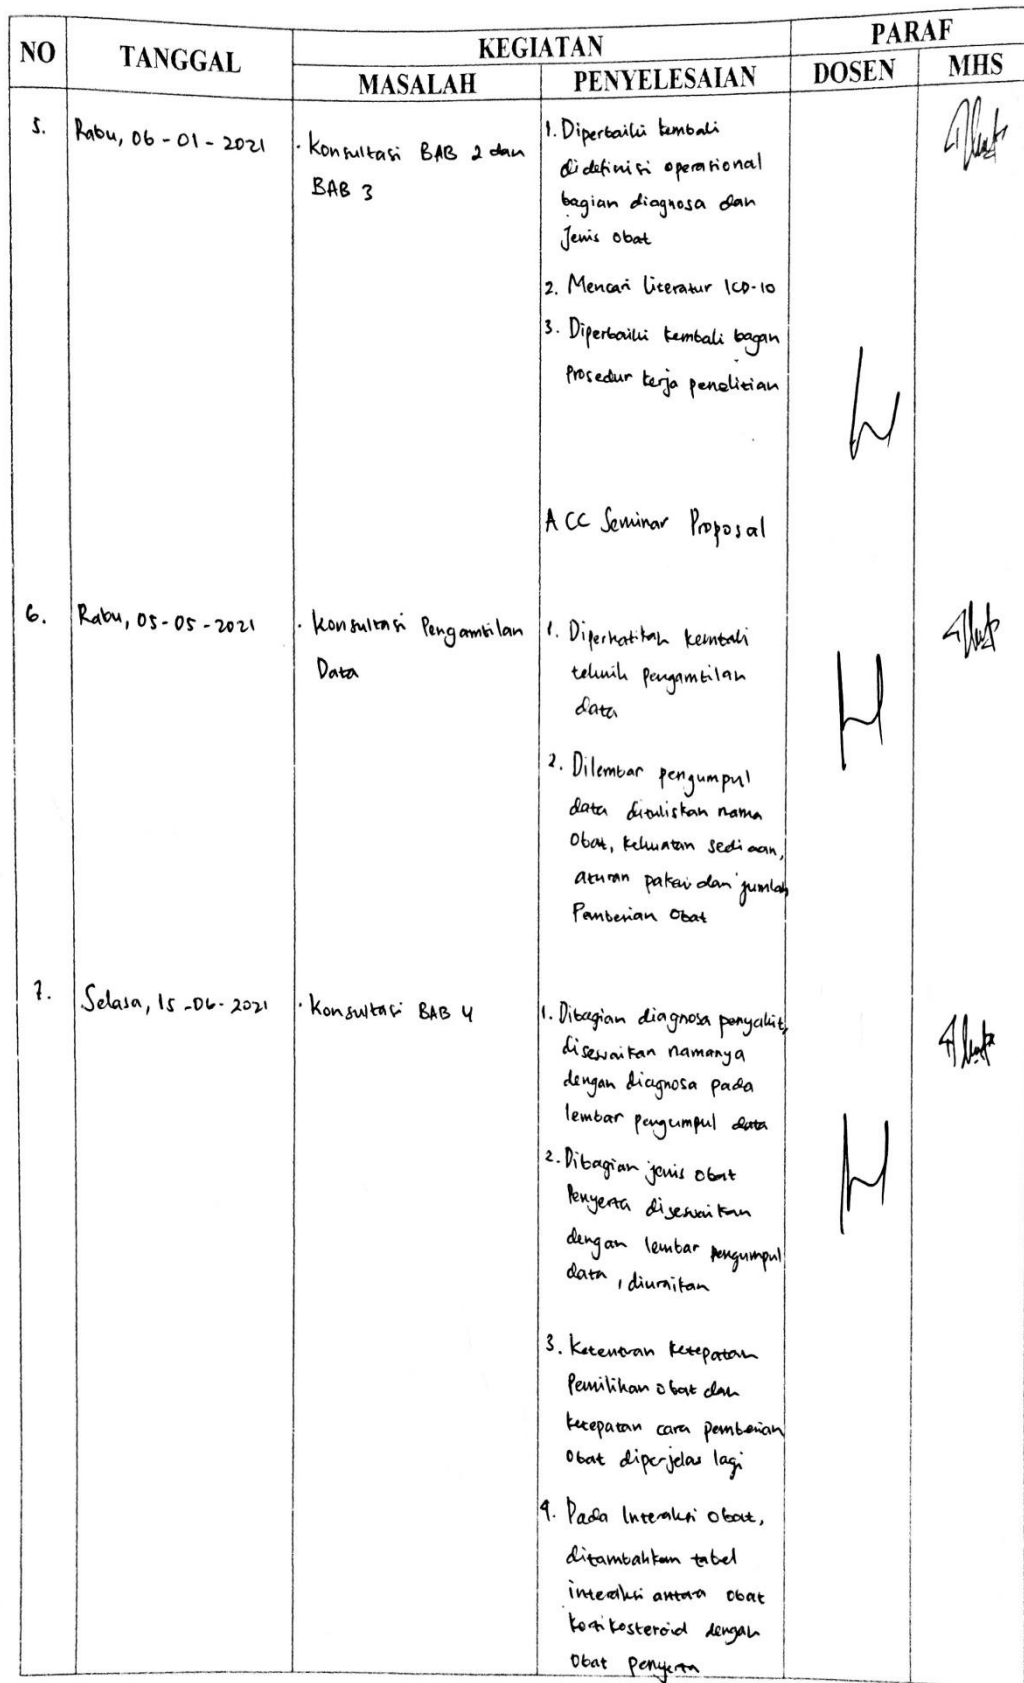 NO TANGGAL KEGIATAN PARAF
MASALAH PENYELESAIAN DOSEN MHS
5. Rabu, 06-01-2021 · Konsultasi BAB 2 dan
BAB 3
1. Diperbaiki kembali
didefinisi operasional
bagian diagnosa dan
Jenis obat
2. Mencari literatur ICD-10
3. Diperbaiki kembali bagan
Prosedur kerja penelitian
ACC Seminar Proposal
6. Rabu, 05-05-2021 · Konsultasi Pengambilan
Data
1. Diperhatikan kembali
tehnik pengambilan
data
2. Dilembar pengumpul
data dituliskan nama
Obat, kekuatan sediaan,
aturan pakai dan jumlah
Pemberian Obat
7. Selasa, 15-06-2021 · Konsultasi BAB 4
1. Dibagian diagnosa penyakit,
disesuaikan namanya
dengan diagnosa pada
lembar pengumpul data
2. Dibagian jenis obat
Penyerta disesuaikan
dengan lembar pengumpul
data, diuraikan
3. Ketentuan ketepatan
Pemilihan obat dan
ketepatan cara pemberian
Obat diperjelas lagi
4. Pada Interaksi obat,
ditambahkan tabel
interaksi antara obat
kortikosteroid dengan
Obat penyerta